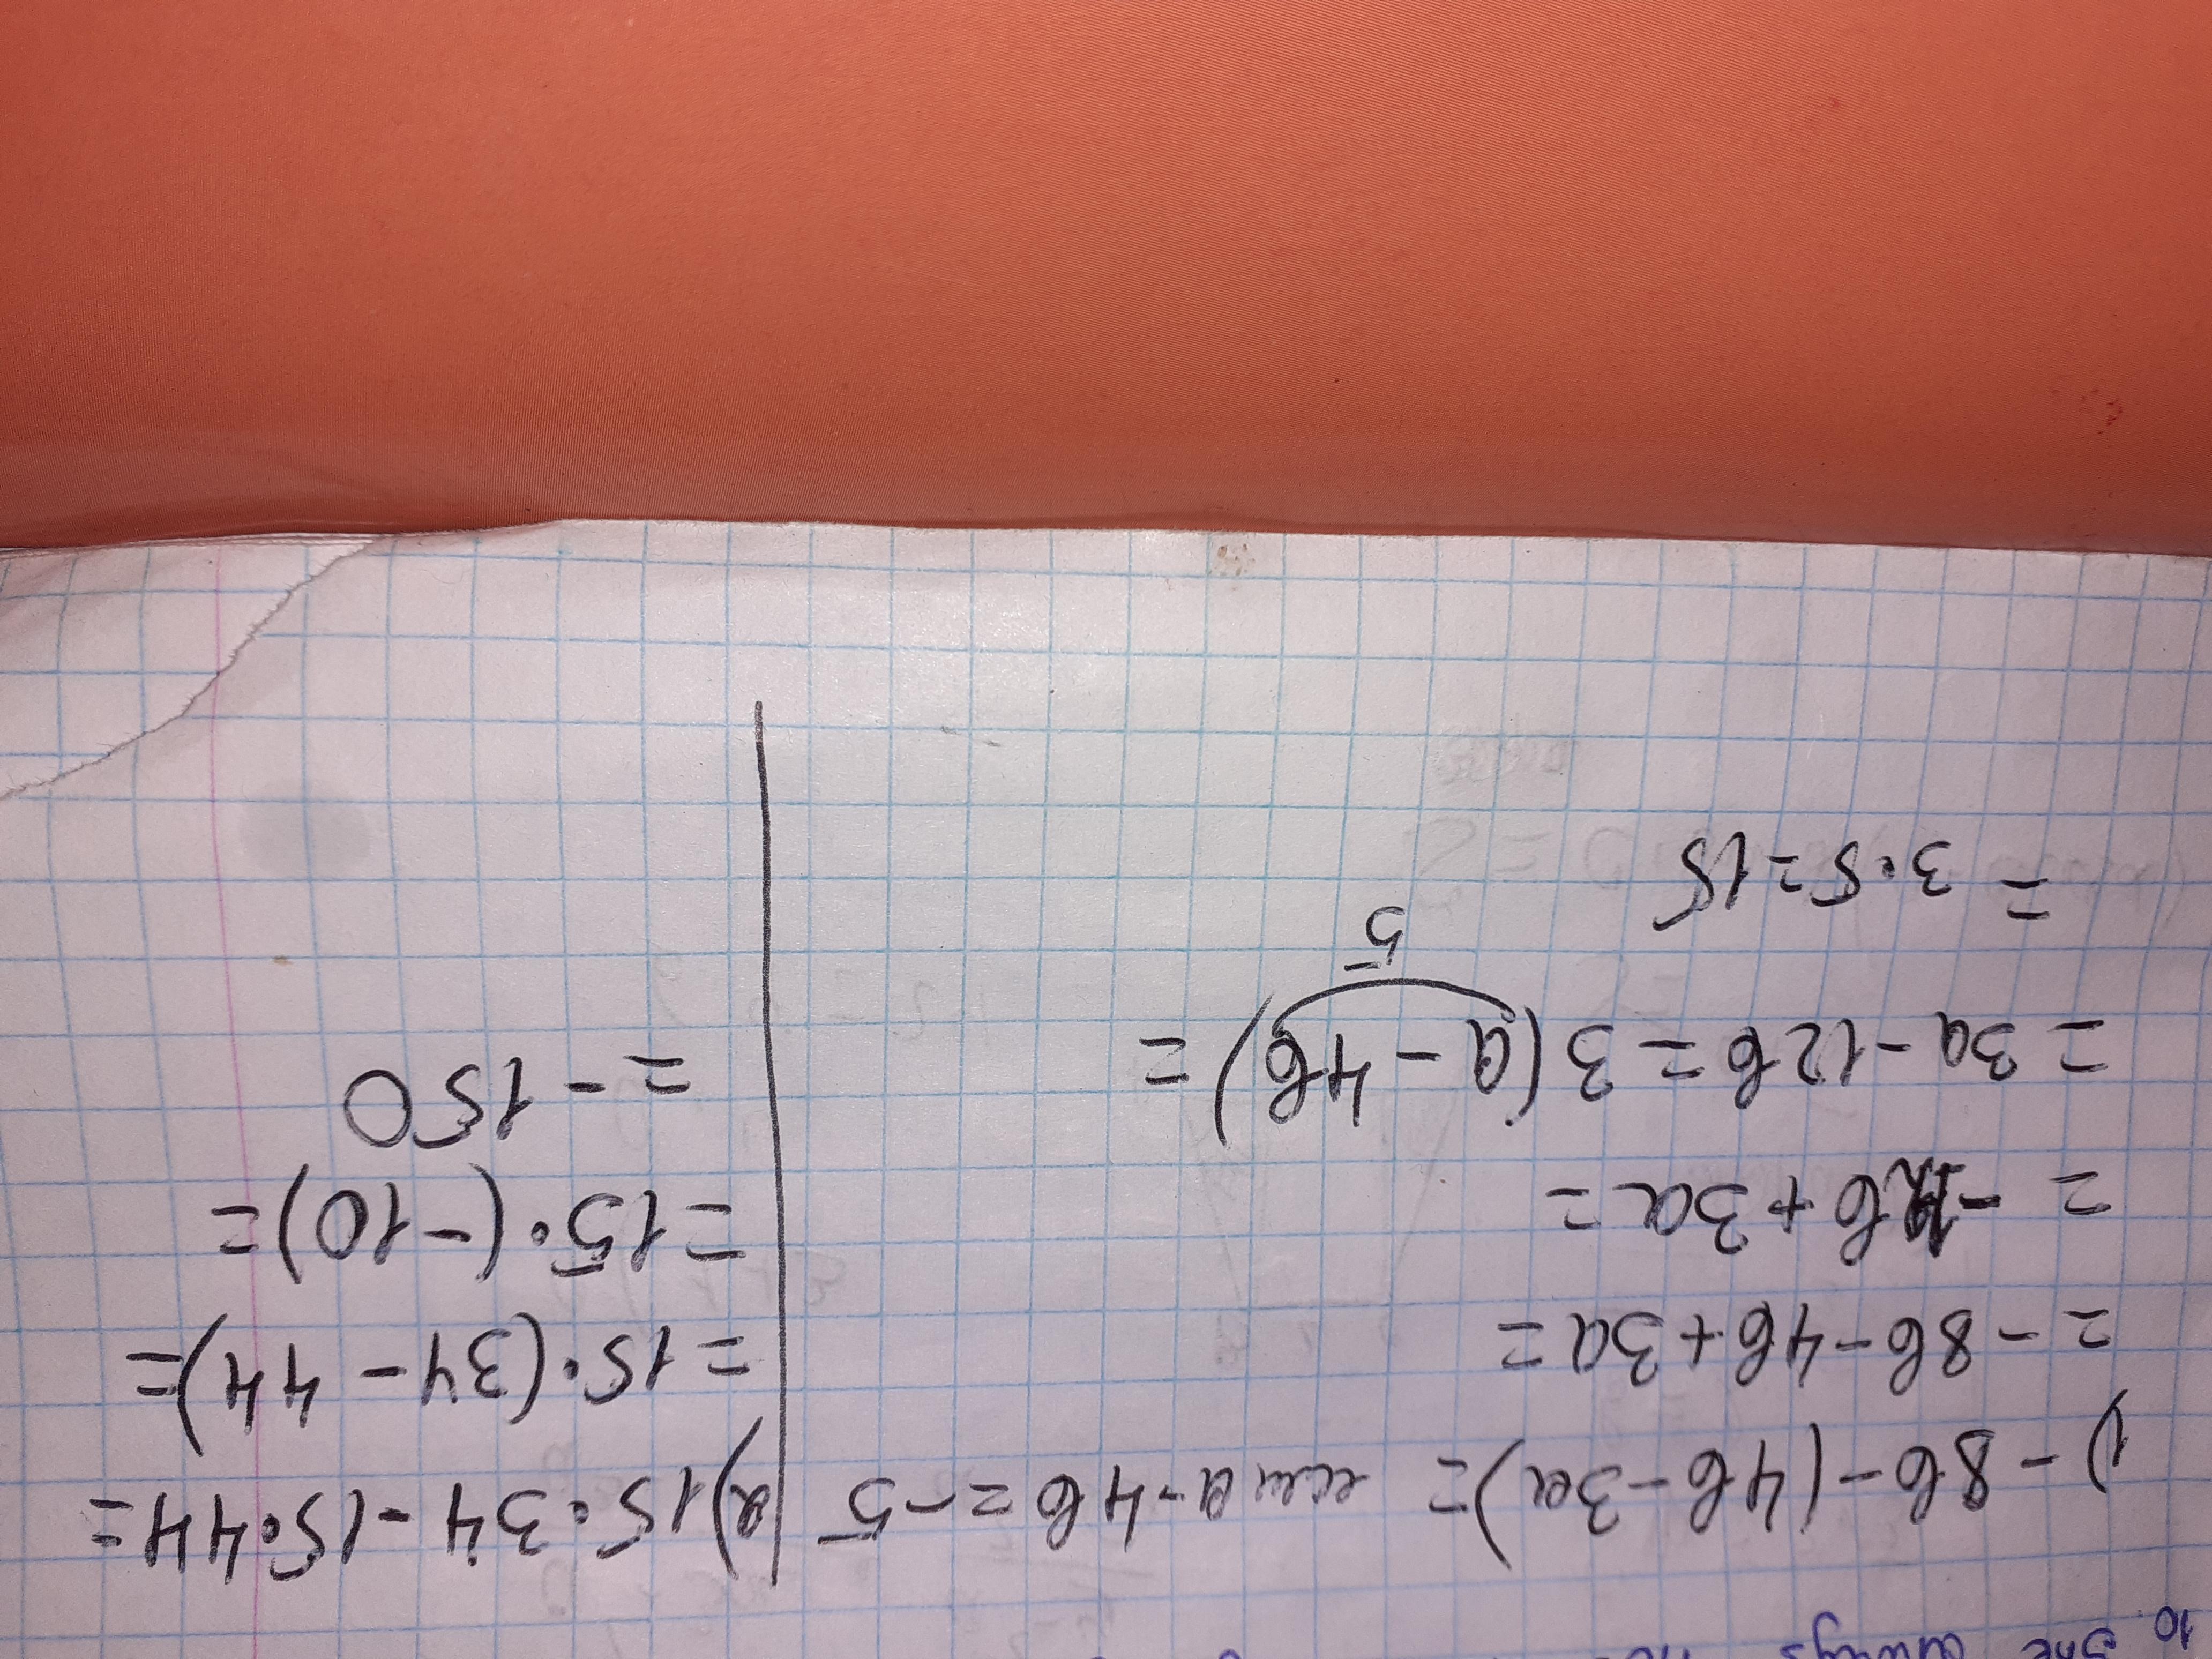 10 She always
1) -8b-(4b-3a)= если a-4b=-5
=-8b-4b+3a=
=-12b+3a=
=3a-12b=3(a-4b)=
5
=3·5=15
2) 15·34-15·44=
=15·(34-44)=
=15·(-10)=
=-150